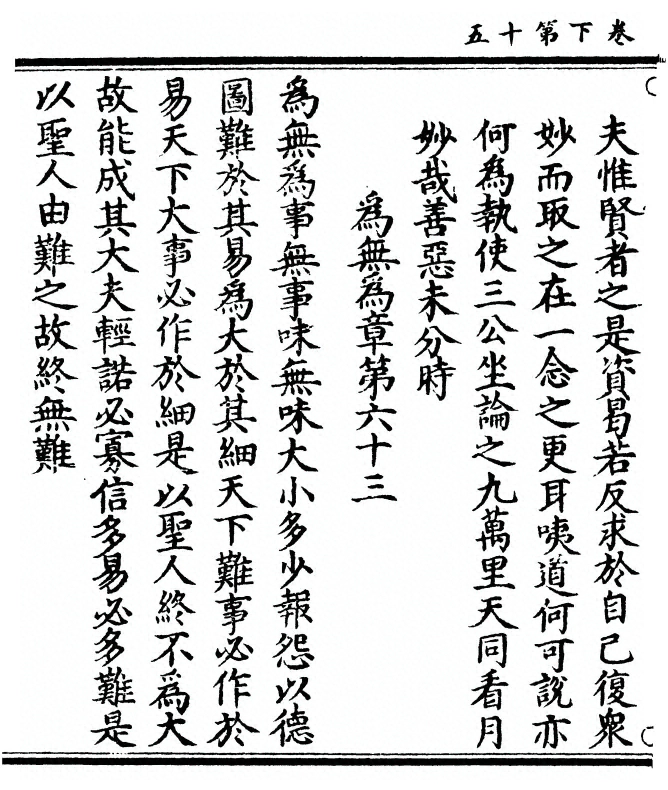 卷下第十五
夫惟賢者之是資曷若反求於自己復衆
妙而取之在一念之更耳咦道何可說亦
何為執使三公坐論之九萬里天同看月
妙哉善惡未分時
為無為章第六十三
為無為事無事味無味大小多少報怨以德
圖難於其易為大於其細天下難事必作於
易天下大事必作於細是以聖人終不為大
故能成其大夫輕諾必寡信多易必多難是
以聖人由難之故終無難